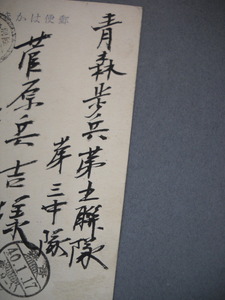 郵便はかき
青森歩兵第五聯隊
第三中隊
菅原兵吉様
40.1.17